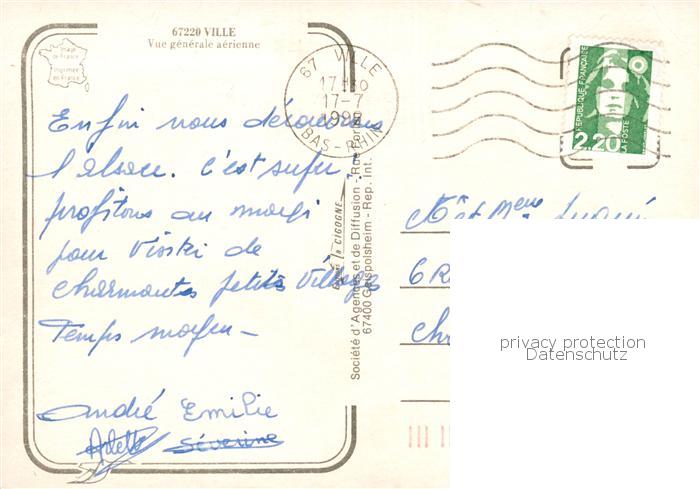 67220 VILLE
Vue générale aérienne
Image
de France
Imprimée
en France
67 VILLE
17-7
BAS-RHIN
RÉPUBLIQUE FRANÇAISE
LA POSTE
2,20
Enfin nous découvrons
l'alsace. C'est super,
profitons au maxi
pour visiter de
charmants petits villages
Temps moyen -
André Emilie
Arlette Séverine
CIGOGNE
Société d'Agences et de Diffusion - Rue
67400 Geispolsheim - Rep. Int.
privacy protection
Datenschutz